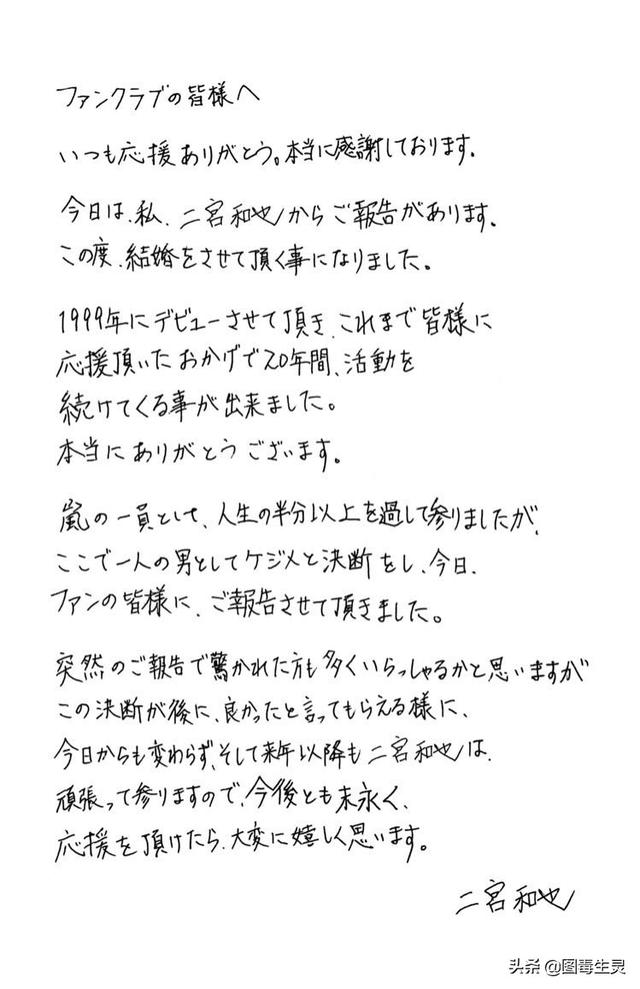 ファンクラブの皆様へ
いつも応援ありがとう。本当に感謝しております。
今日は、私、二宮和也からご報告があります。
この度、結婚をさせて頂く事になりました。
1999年にデビューさせて頂き、これまで皆様に
応援頂いたおかげで20年間、活動を
続けてくる事が出来ました。
本当にありがとうございます。
嵐の一員として、人生の半分以上を過して参りましたが、
ここで一人の男としてケジメと決断をし、今日、
ファンの皆様に、ご報告させて頂きました。
突然のご報告で驚かれた方も多くいらっしゃるかと思いますが
この決断が後に、良かったと言ってもらえる様に、
今日からも変わらず、そして来年以降も二宮和也は、
頑張って参りますので、今後とも末永く、
応援を頂けたら、大変に嬉しく思います。
二宮和也
头条 @图毒生灵